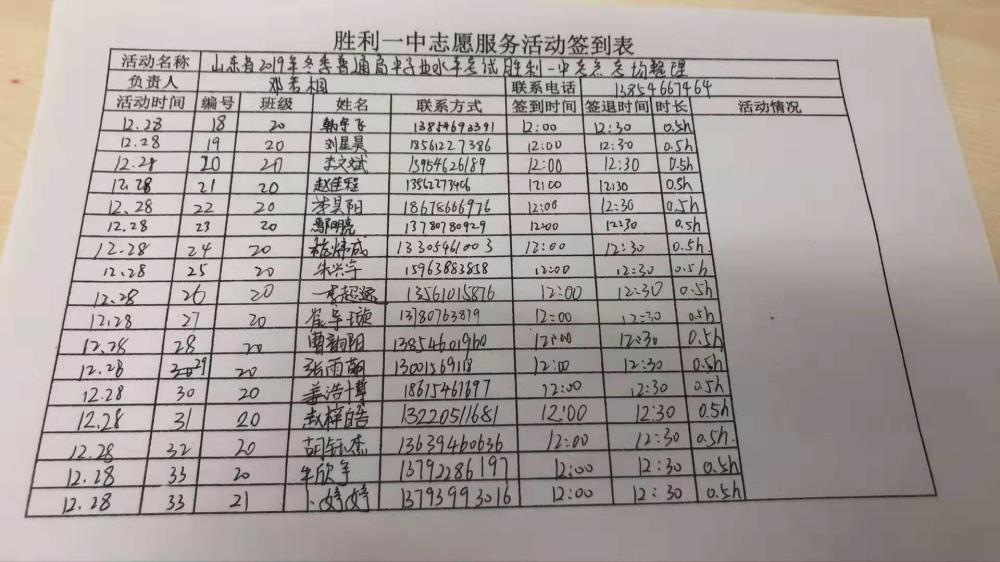 胜利一中志愿服务活动签到表
活动名称 山东省2019年冬季普通高中学业水平考试胜利一中考点考场整理
负责人 联系电话 13854667464
活动时间 编号 班级 姓名 联系方式 签到时间 签退时间 时长 活动情况
12.28 18 20 韩宇飞 13854693391 12:00 12:30 0.5h
12.28 19 20 刘星昊 18561227386 12:00 12:30 0.5h
12.28 20 20 李文斌 15954626189 12:00 12:30 0.5h
12.28 21 20 赵佳程 13562273406 12:00 12:30 0.5h
12.28 22 20 李昊阳 18678666976 12:00 12:30 0.5h
12.28 23 20 13780780929 12:00 12:30 0.5h
12.28 24 20 13305461003 12:00 12:30 0.5h
12.28 25 20 朱兴宇 15963883858 12:00 12:30 0.5h
12.28 26 20 13561015876 12:00 12:30 0.5h
12.28 27 20 13780763879 12:00 12:30 0.5h
12.28 28 20 曹韵阳 13854601960 12:00 12:30 0.5h
12.28 29 20 张雨萌 13001569118 12:00 12:30 0.5h
12.28 30 20 姜浩博 18615461697 12:00 12:30 0.5h
12.28 31 20 赵梓皓 13220511681 12:00 12:30 0.5h
12.28 32 20 胡钰杰 13639460636 12:00 12:30 0.5h.
12.28 33 20 牟欣宇 13792286197 12:00 12:30 0.5h
12.28 33 21 卜婷婷 13793993016 12:00 12:30 0.5h